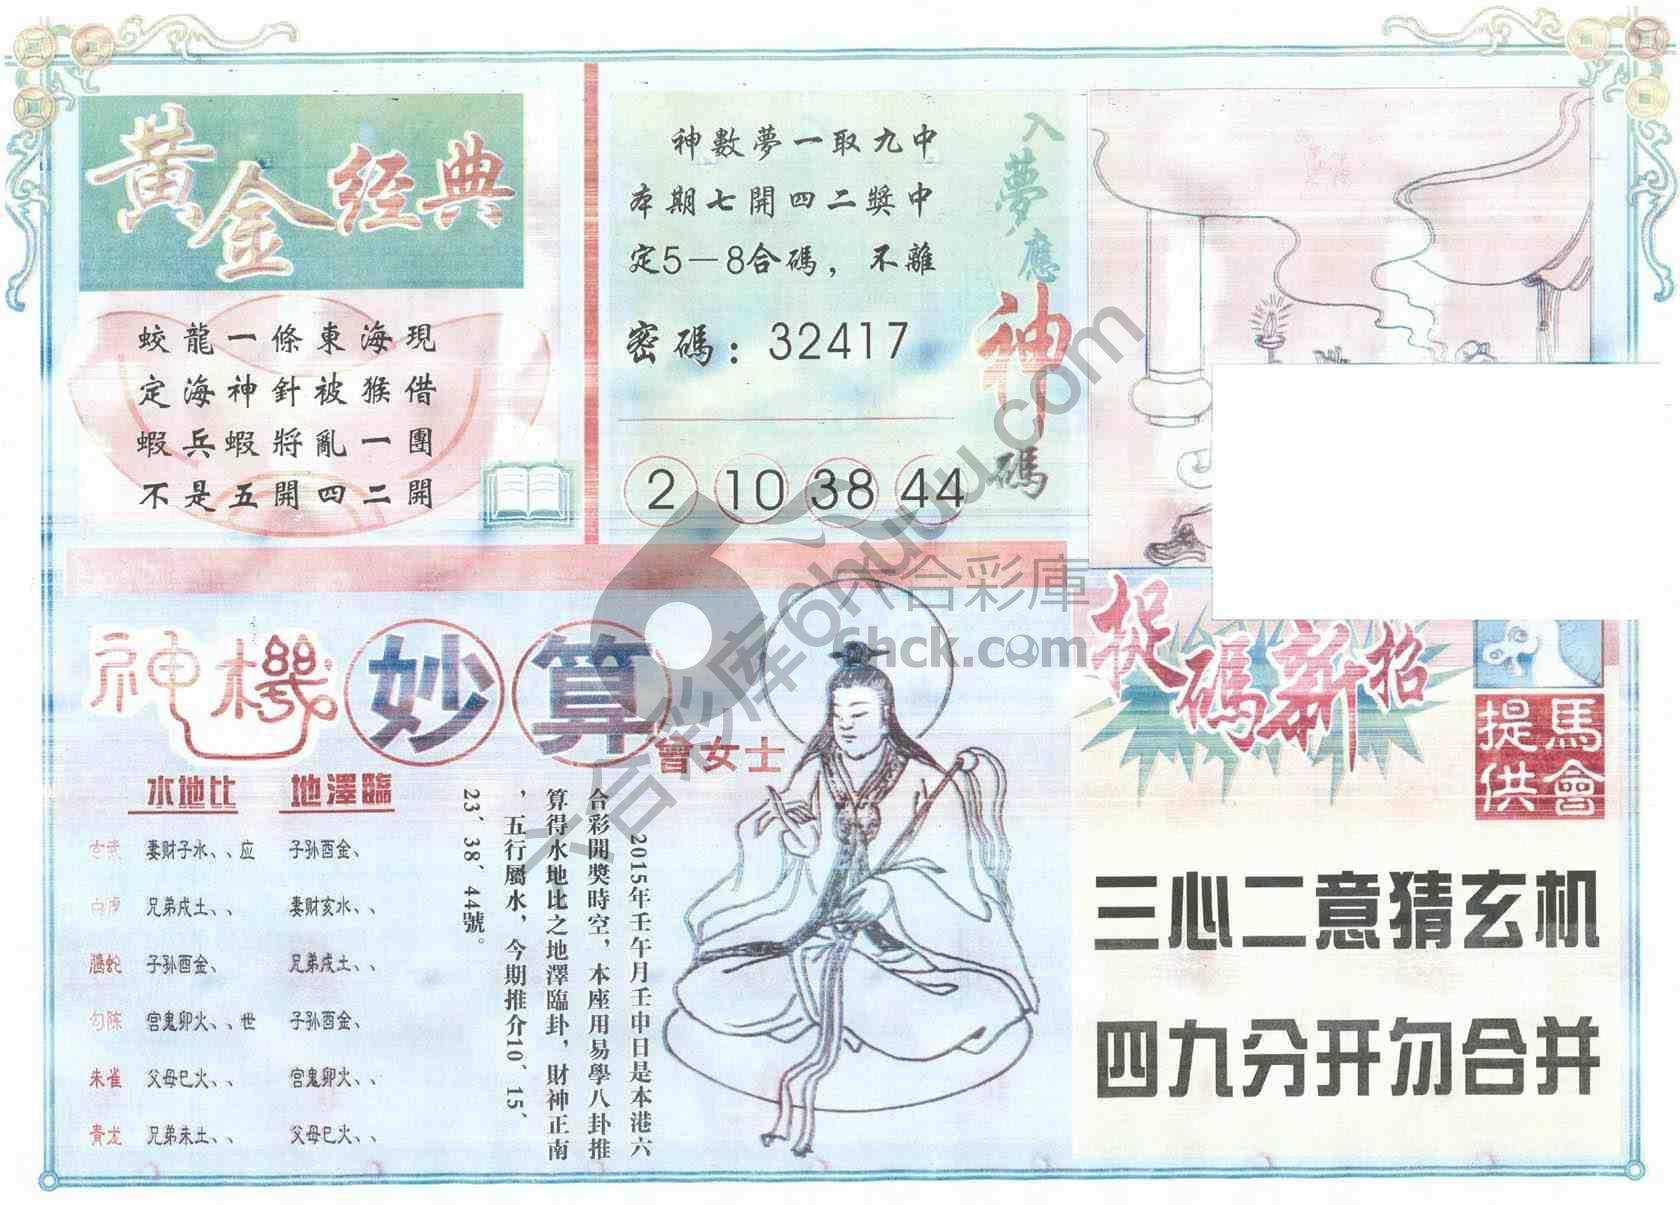 黃金經典
蛟龍一條東海現
定海神針被猴借
蝦兵蝦將亂一團
不是五開四二開
入夢應神碼
神數夢一取九中
本期七開四二獎中
定5－8合碼，不離
密碼：32417
2 10 38 44
神機妙算
曾女士
水地比 地澤臨
玄武 妻财子水、、应 子孙酉金、
白虎 兄弟戌土、、 妻财亥水、、
螣蛇 子孙酉金、 兄弟戌土、、
勾陈 官鬼卯火、、世 子孙酉金、
朱雀 父母巳火、、 官鬼卯火、、
青龙 兄弟未土、、 父母巳火、、
2015年壬午月壬申日是本港六
合彩開獎時空，本座用易學八卦推
算得水地比之地澤臨卦，財神正南
，五行屬水，今期推介10、15、
23、38、44號。
捉碼新招
馬會提供
三心二意猜玄机
四九分开勿合并
六合彩库 6huuu.com
六合彩庫
6hck.com